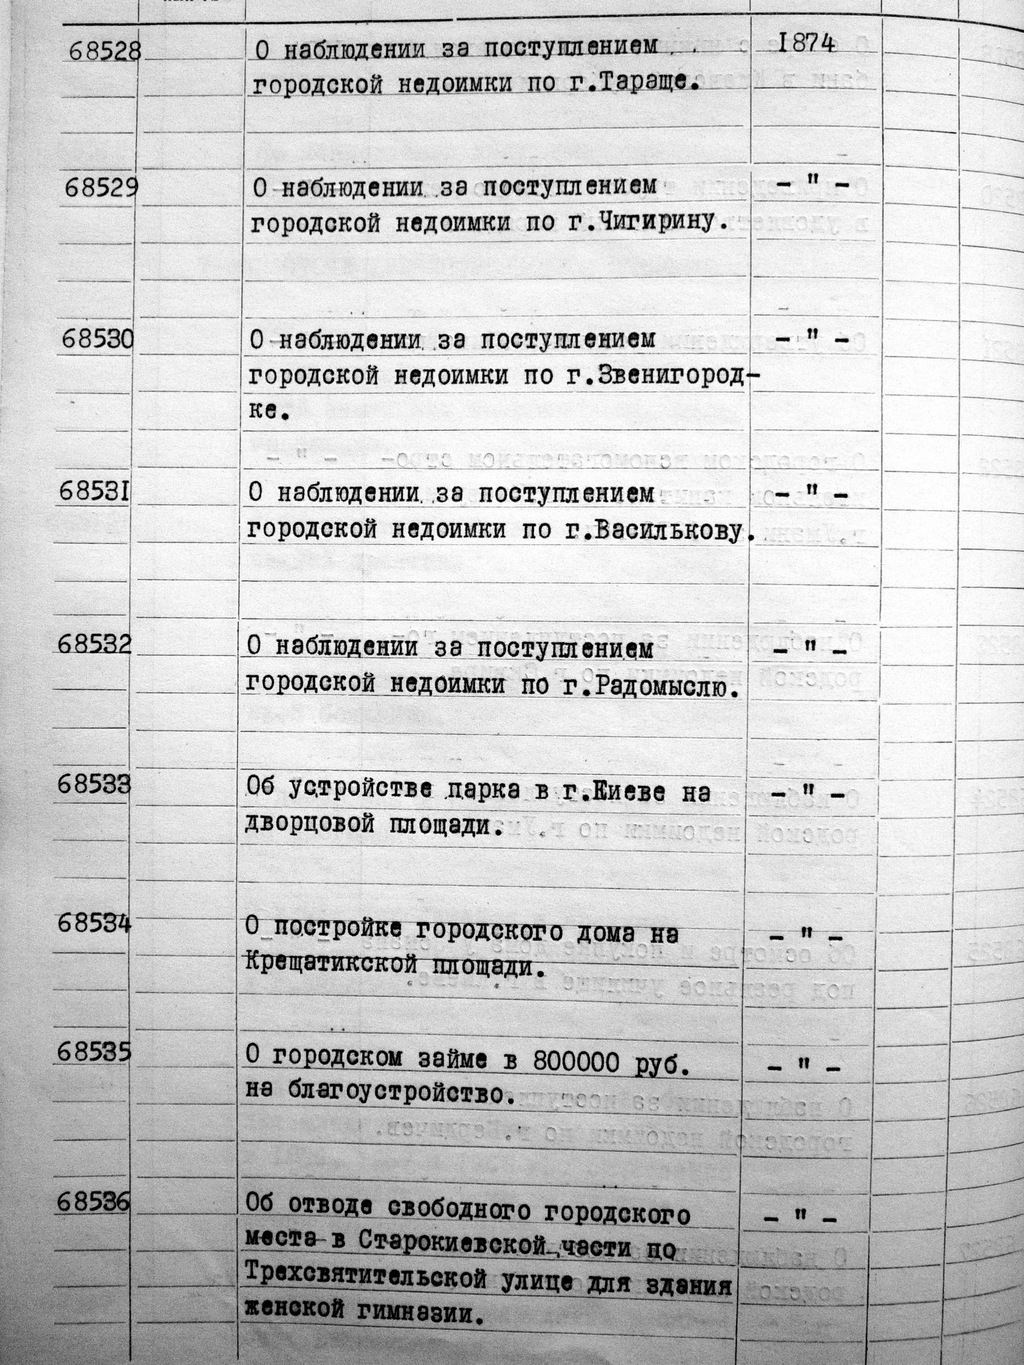 68528 О наблюдении за поступлением 1874
городской недоимки по г.Тараще.
68529 О наблюдении за поступлением - " -
городской недоимки по г.Чигирину.
68530 О наблюдении за поступлением - " -
городской недоимки по г.Звенигород-
ке.
68531 О наблюдении за поступлением - " -
городской недоимки по г.Василькову.
68532 О наблюдении за поступлением - " -
городской недоимки по г.Радомыслю.
68533 Об устройстве парка в г.Киеве на - " -
дворцовой площади.
68534 О постройке городского дома на - " -
Крещатикской площади.
68535 О городском займе в 800000 руб. - " -
на благоустройство.
68536 Об отводе свободного городского - " -
места в Старокиевской части по
Трехсвятительской улице для здания
женской гимназии.